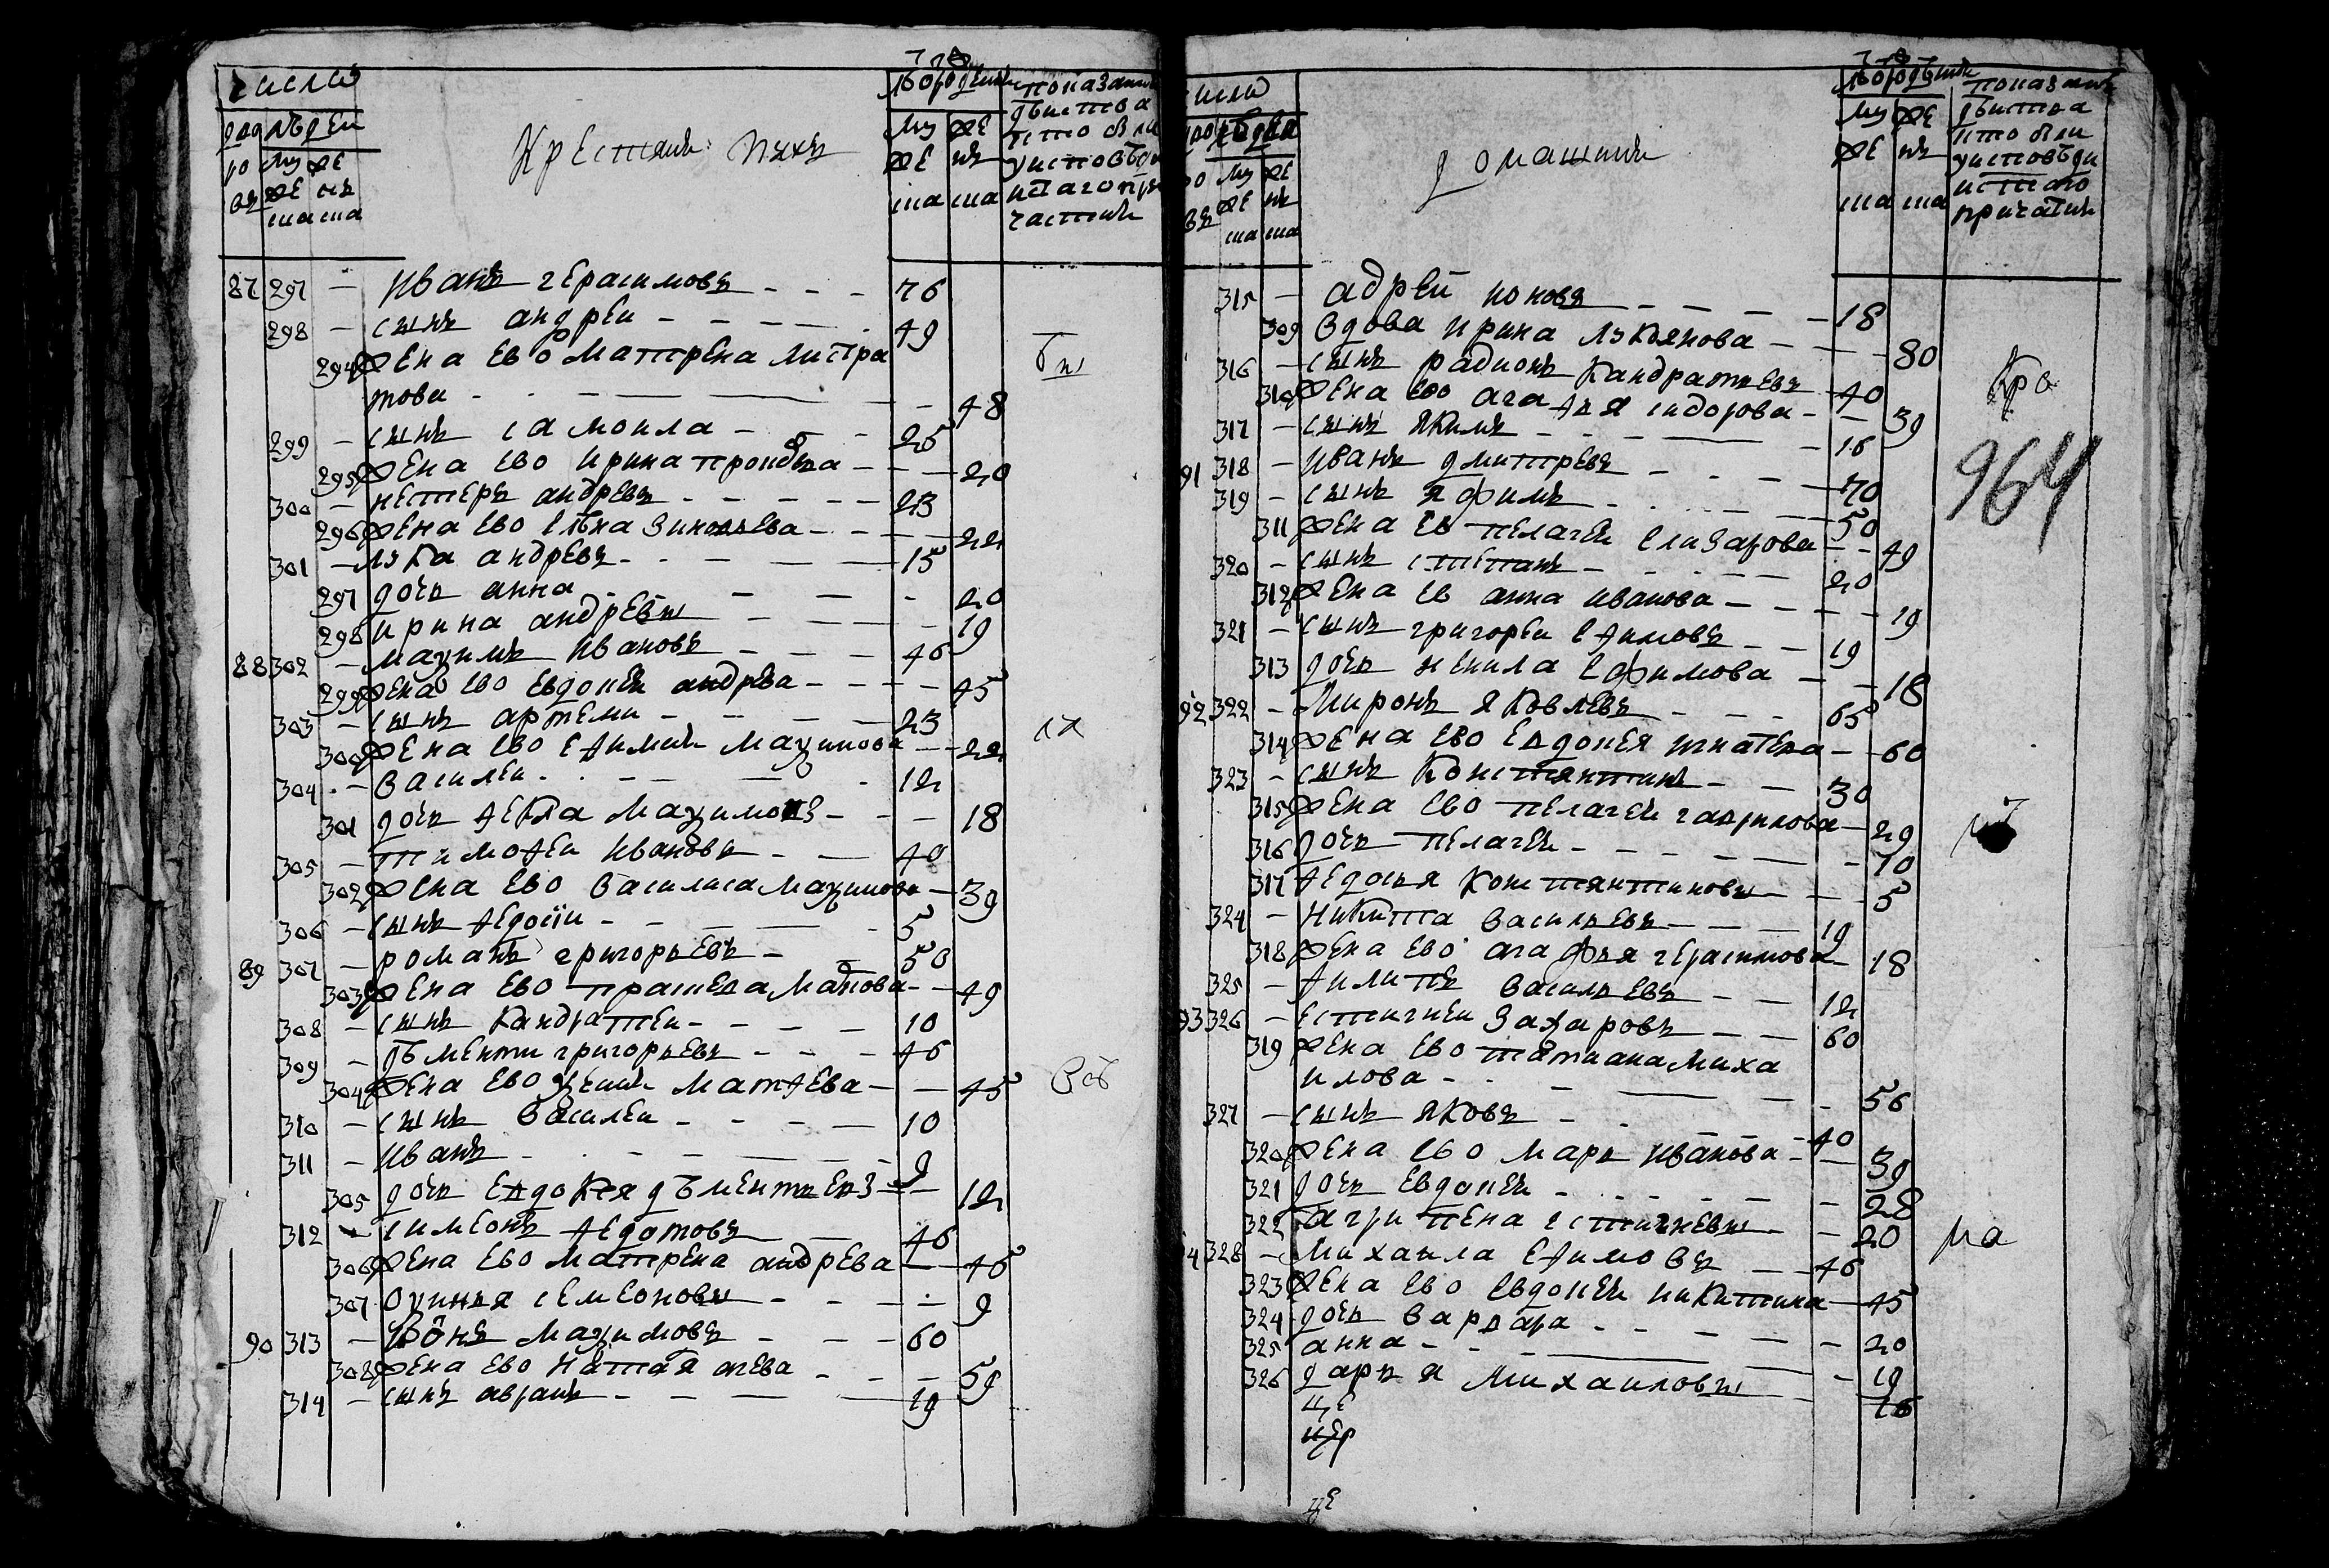 число
дво ро въ
людеи
муже ска
женска
Крестяне ихъ
годы
от рождения
му же ска
же нъ ска
показани
деиства
кто былъ
у исповеди
и с того при
частия
87 297 — Иванъ герасимовъ - - - 76
298 — сынъ андреи - - - 49
294 жена ево матрена листра
това - - 48
299 — сынъ самоила - - - 25
295 жена ево ирина - - - 20
300 — нестеръ андревъ - - - 23
296 жена ево елена зиновьева - - - 22
301 — лука андревъ - - - 15
297 дочь анна - - - 20
298 ирина андревы - - - 19
88 302 — мазимъ ивановъ - - - 46
299 жена ево евдокея андрева - - - 45
303 — сынъ артемеи - - - 23
300 жена ево ефимия мазимова - - 22
304 — василеи - - - 12
301 дочь фекла мазимова - - - 18
305 — тимофеи ивановъ - - 40
302 жена ево василиса мазимова - 39
306 — сынъ федосіи - - - 5
89 307 — романъ григорьевъ - - 50
303 жена ево матова - - 49
308 — сынъ кандратеи - - - 10
309 — дементи григорьевъ - - - 46
304 жена ево матфева - - 45
310 — сынъ василеи - - - 10
311 — иванъ - - - 9
305 дочь евдокея дементьева - - 12
312 — симеонъ федотовъ - 46
306 жена ево матрена андрева - 45
307 семеоновы - - - 9
90 313 — мазимовъ - - - 60
308 жена ево - - - 59
314 — сынъ аврамъ - - - 19
число
домашние
годы
от рождения
му же ска
же нъ ска
показание
деиства
кто былъ
у исповеди
и с того
причастия
315 — адреи кононовъ - - - 18
309 вдова ирина лукянова - - - 80
316 — сынъ радионъ кандратьевъ 40
310 жена ево агафья сидорова - - 39
317 — сынъ якимъ - - - 16
91 318 — иванъ дмитревъ - - - 70
319 — сынъ яфимъ - - - 50
311 жена ев пелагеи елизарова - - 49
320 — сынъ степанъ - - - 20
312 жена ев анна иванова - - - 19
321 — сынъ григореи ефимовъ - - 19
313 дочь ненила ефимова - - 18
92 322 — миронъ яковлевъ - - - 65
314 жена ево евдокея игнатева - 60
323 — сынъ константинъ - - 30
315 жена ево пелагеи гаврилова - 29
316 дочь пелагеи - - - 10
317 федосья константиновы - - 5
324 — никита васильевъ - - - 19
318 жена ево агафья герасимова - 18
325 — филипъ васильевъ - - 12
93 326 — естигнеи захаровъ - - 60
319 жена ево татиана миха
илова - - - 56
327 — сынъ яковъ - - - 40
320 жена ево марь иванова - - 39
321 дочь евдокеи - - - 28
322 агрипена естигневы - 20
94 328 — михаила ефимовъ - 46
323 жена ево евдокеи никитина - 45
324 дочь варвара - - - 20
325 анна - - - 19
326 дарья михаиловы - 16
це
цер
це
964